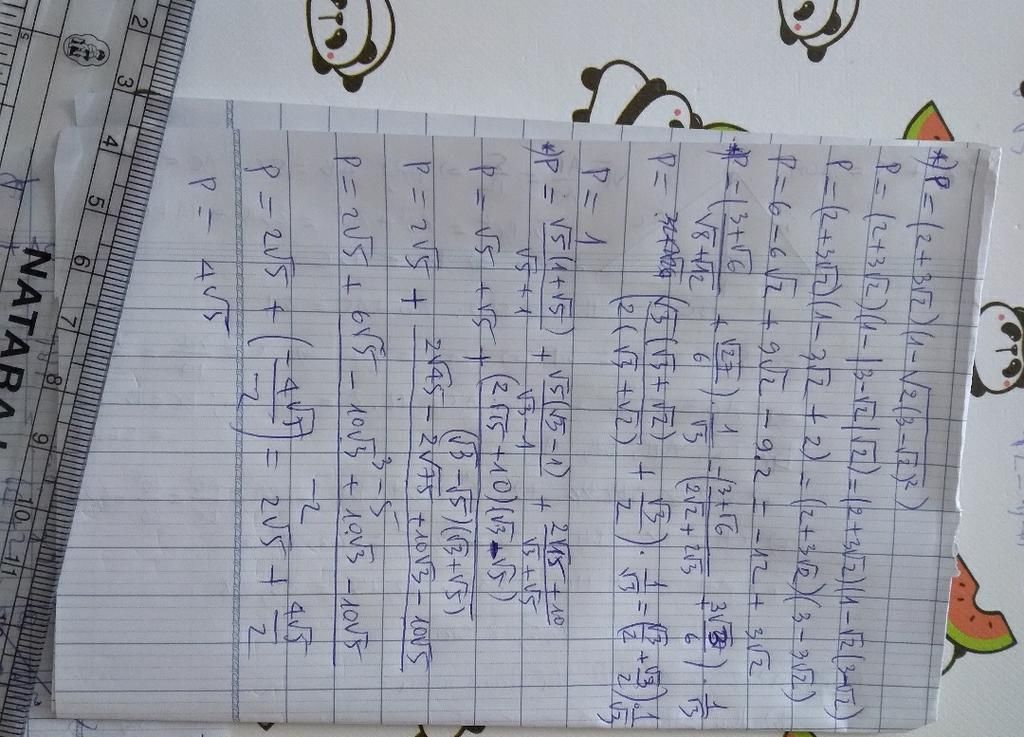 *) P = (2+3√2)(1-√2(3-√2)²)
P = (2+3√2)(1-|3-√2|√2) = (2+3√2)(1-√2(3-√2))
P = (2+3√2)(1-3√2+2) = (2+3√2)(3-3√2)
P = 6-6√2+9√2-9.2 = -12+3√2
*) P = (3+√6/√8+√12 + √27/6) . 1/√3 = (3+√6/2√2+2√3 + 3√3/6) . 1/√3
P = (√3(√3+√2)/2(√3+√2) + √3/2) . 1/√3 = (√3/2 + √3/2) . 1/√3
P = 1
*) P = √5(1+√5)/√5+1 + √5(√3-1)/√3-1 + 2√15+10/√3+√5
P = √5 + √5 + (2√15+10)(√3-√5)/(√3-√5)(√3+√5)
P = 2√5 + 2√45-2√75+10√3-10√5/3-5
P = 2√5 + 6√5-10√3+10√3-10√5/-2
P = 2√5 + (-4√5/-2) = 2√5 + 4√5/2
P = 4√5
NATARAJ
2 3 4 5 6 7 8 9 10 11